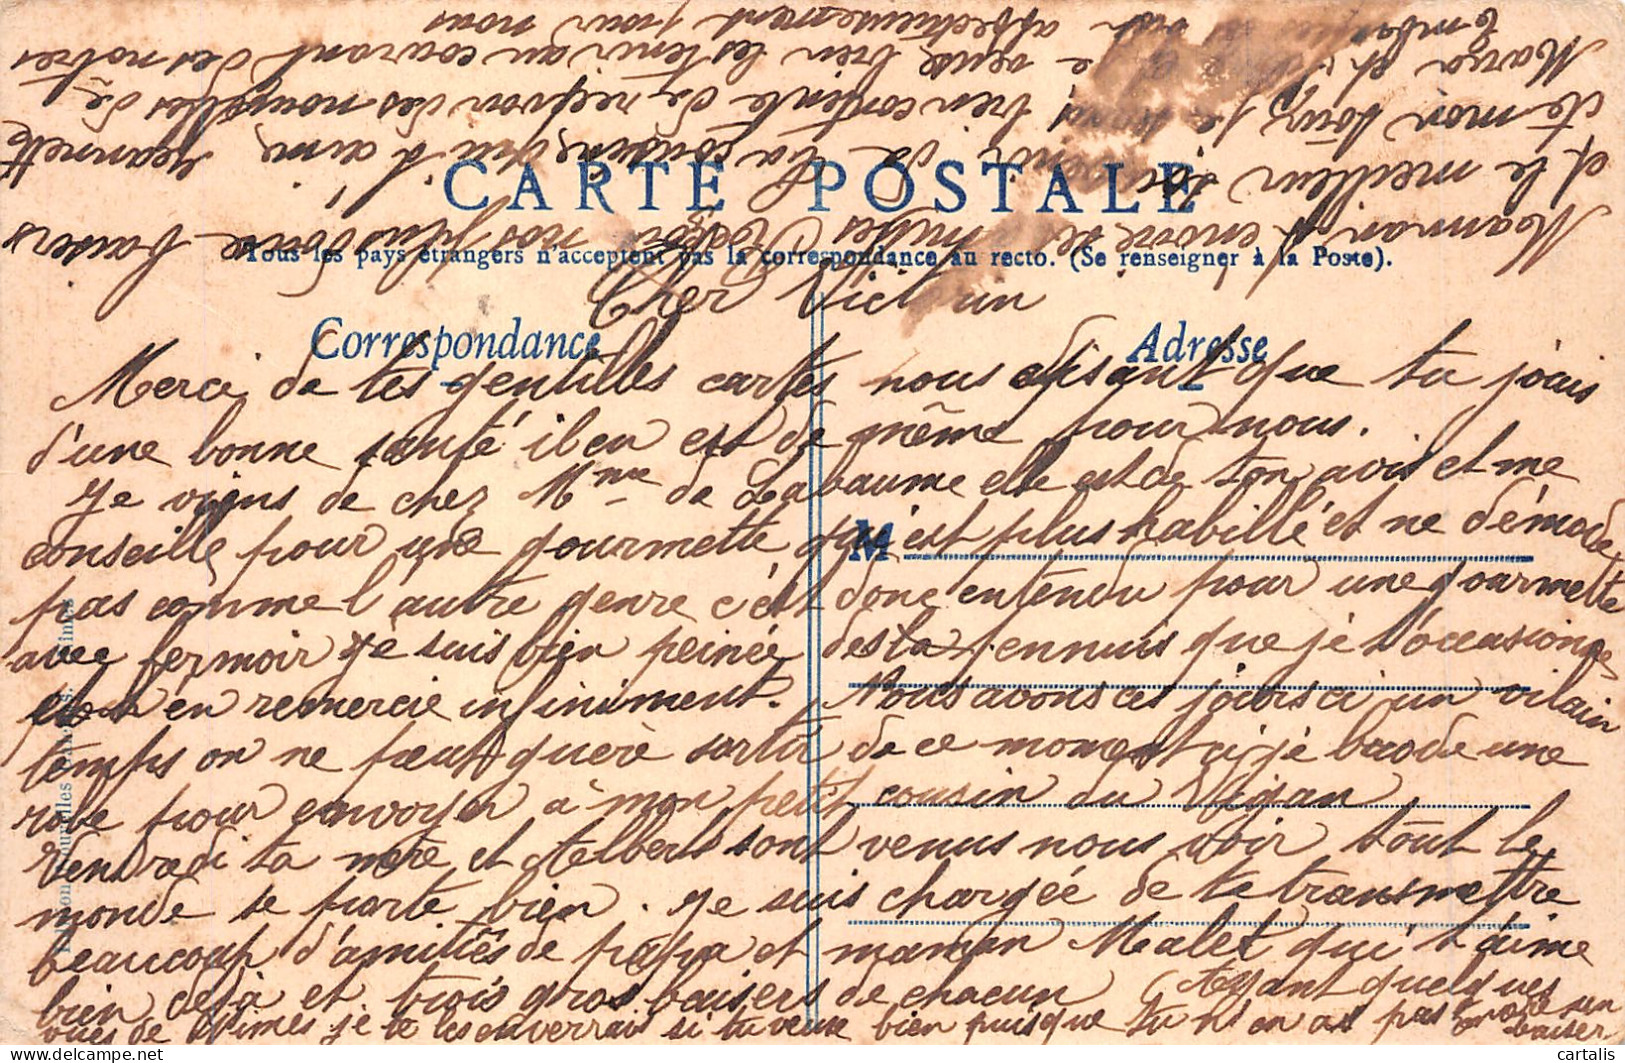 CARTE POSTALE
Tous les pays étrangers n'acceptent pas la correspondance au recto. (Se renseigner à la Poste).
Correspondance
Adresse
M
Cher Victorin
Merci de tes gentilles cartes nous disant que tu jouis
d'une bonne santé il en est de même pour nous.
Je viens de chez Mme de Labaume elle est de ton avis et me
conseille pour une gourmette qui est plus habillé et ne démode
pas comme l'autre genre c'est donc entendu pour une gourmette
avec fermoir je suis bien peinée des ennuis que je t'occasionne
et t'en remercie infiniment. Nous avons ces jours ci un vilain
temps on ne peut guère sortir de ce moment ci je brode une
robe pour envoyer à mon petit cousin du Vigan
Vendredi ta mère et Albert sont venus nous voir tout le
monde se porte bien. Je suis chargée de te transmettre
beaucoup d'amitiés de papa et maman Malet qui t'aime
bien déjà et trois gros baisers de chacun (Ayant quelques
vues de Nimes je te les enverrai si tu veux bien puisque tu n'en as pas encore un baiser
Maman et encore les nos plus doux baisers
et le meilleur souvenir de ta cousine qui t'aime Jeannette
de mon bien contente de reçevoir des nouvelles de
Marya et veux bien les tenir au courant des notres
affectueusement pour nous